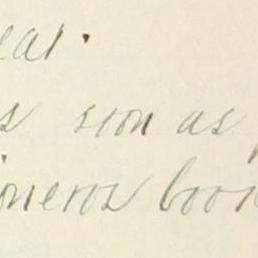 eat.
s soon as
ioneros book